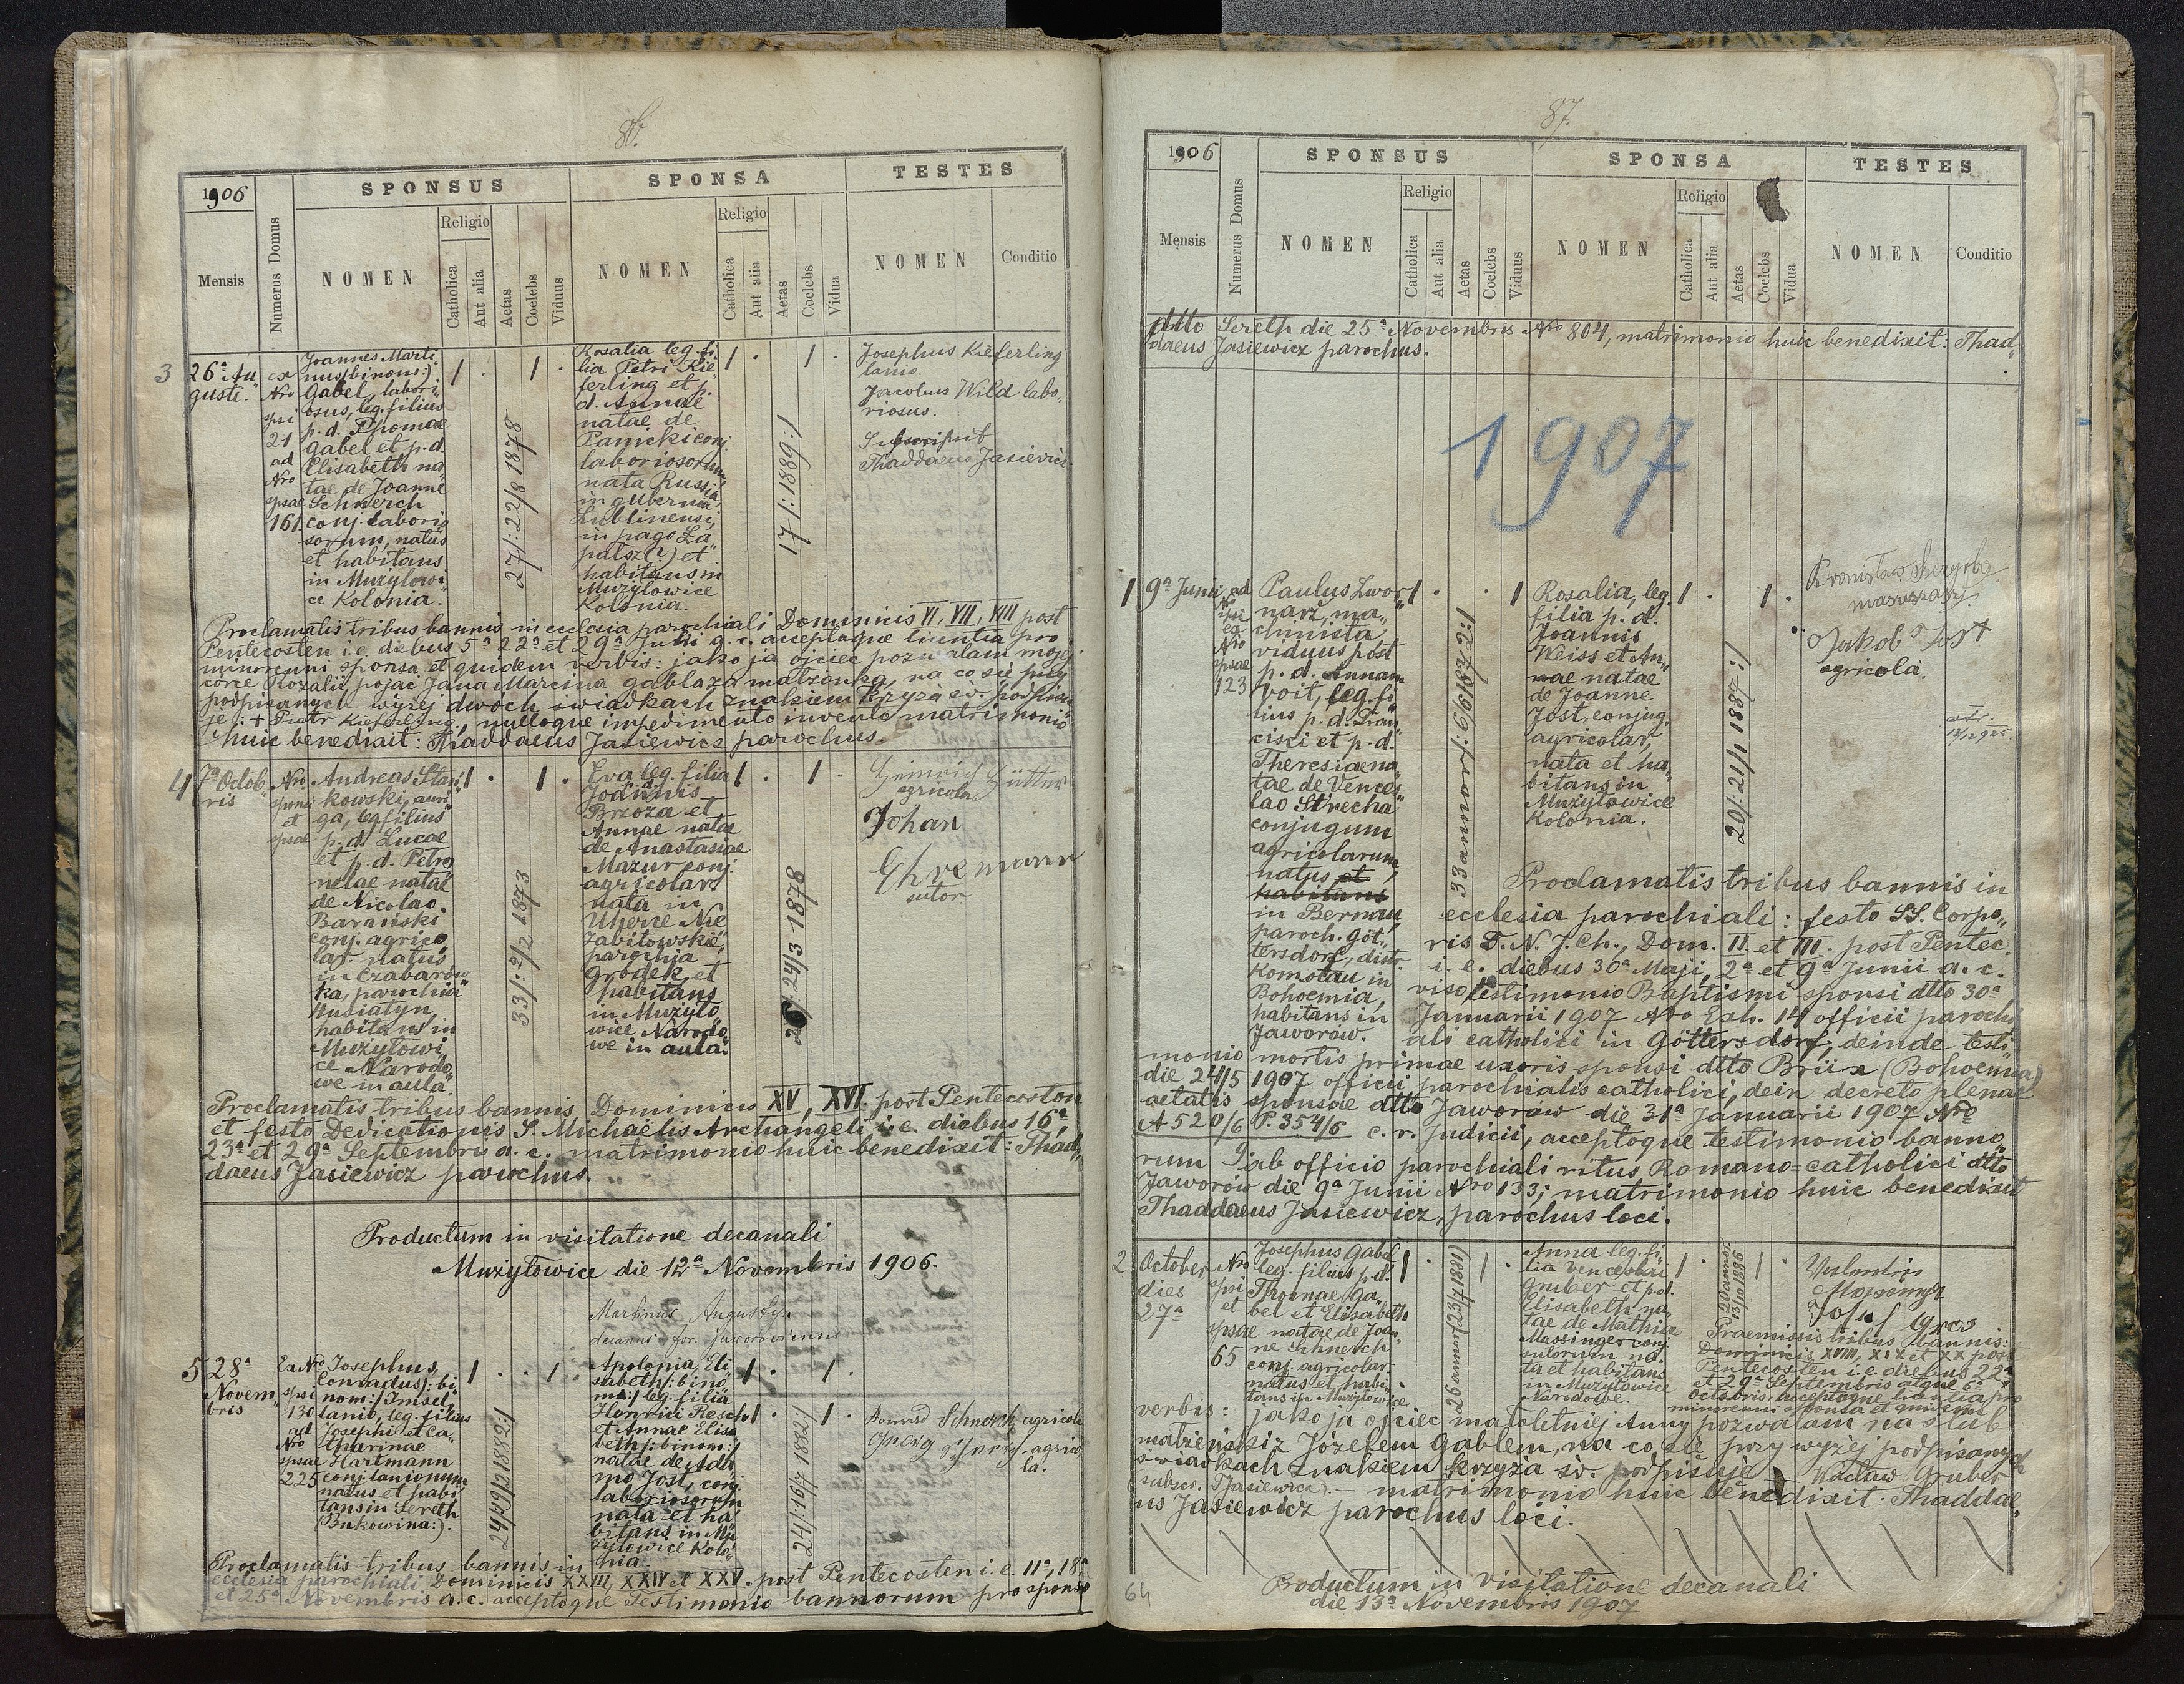 86.
1906
SPONSUS
SPONSA
TESTES
Mensis
Numerus Domus
NOMEN
Religio
Catholica
Aut alia
Aetas
Coelebs
Viduus
NOMEN
Religio
Catholica
Aut alia
Aetas
Coelebs
Vidua
NOMEN
Conditio
3
26ª Au
gusti.
ex
Nro
spsi
21
ad
Nro
spsae
161.
Joannes Marti
nus (binom:)
Gabel, labori„
osus, leg. filius
p. d. Thomae
Gabel et p. d.
Elisabeth na„
tae de Joanne
Schnerch
conj. laborio
sorum, natus
et habitans
in Mużyłowi
ce Kolonia.
1 . 1 .
27/: 22/8 1878
Rosalia leg. fi„
lia Petri Kie„
ferling et p.
d. Annae
natae de
Panicki conj.
laboriosorum
nata Russia
in gubernia
Lublinensi,
in pago Za„
palsz(?) et
habitans in
Mużyłowice
Kolonia.
1 . 1 .
17/: 1889:/
Josephus Kieferling
lanio.
Jacobus Wild labo„
riosus.
Subscripsit
Thaddaeus Jasiewicz
Proclamatis tribus bannis in ecclesia parochiali Dominicis VI, VII, XIII post
Pentecosten i. e. diebus 5ª 22ª et 29ª Julii a. c. acceptaque licentia pro
minorenni sponsa et quidem verbis: jako ja ojciec pozwalam mojej
córce Rozalii pojąć Jana Marcina Gabla za małżonka, na co się przy
podpisanych wyżej dwóch świadkach znakiem krzyża św. podpisu
ję: + Piotr Kieferling, nulloque impedimento invento matrimonio
huic benedixit: Thaddaeus Jasiewicz parochus.
4
7ª Octob„
ris
Nro
sponsi
et
spsae
Andreas Stani„
kowski, auri„
ga, leg. filius
p. d. Lucae
et p. d. Petro
nelae natae
de Nicolao
Barański
conj. agrico„
lar. natus
in Czabarów
ka, parochia
Husiatyn
habitans in
Mużyłowi
ce Narodo„
we in aula.
1 . 1 .
33/: 2/2 1873
Eva leg. filia
Joannis
Brzoza et
Annae natae
de Anastasiae
Mazur conj.
agricolar.
nata in
Uherce Nie
zabitowskie„
parochia
Gródek, et
habitans
in Mużyło
wice Narodo„
we in aula.
1 . 1 .
24/3 1878
Heinrich Hütter
agricola
Johan
Ehremann
sutor
Proclamatis tribus bannis, Dominicis XV, XVI. post Pentecosten
et festo Dedicationis S. Michaëlis Archangeli i. e. diebus 16ª,
23ª et 29ª Septembris a. c. matrimonio huic benedixit: Thad„
daeus Jasiewicz parochus.
Productum in visitatione decanali
Mużyłowice die 12ª Novembris 1906.
Martinus Augustyn
decanus for. jaworoviensis
5
28ª
Novem
bris
Ex Nro
spsi
130
ad
Nro
spsae
225
Josephus,
Conradus/: bi„
nom:/ Imsel
lanio, leg. filius
Josephi et Ca„
tharinae
Hartmann
conj. lanionum
natus et habi
tans in Sereth
(Bukowina:).
1 . . 1
24/29/2 1882:/
Apolonia, Eli
sabeth/: bino
mi:/ leg. filia
Henrici Resch
et Annae Elisa
beth/: binom:/
natae de Ada„
mo Jost, conj.
laboriosorum
nata et ha„
bitans in Mu
żyłowice Kolo„
nia.
1 . 1 .
24/: 16/7 1882:/
Konrad Schnerch agricola
Georg agrico
la.
Proclamatis tribus bannis in
ecclesia parochiali Dominicis XXIII, XXIV et XXV. post Pentecosten i. e. 11ª, 18ª
et 25ª Novembris a. c. acceptoque Testimonio bannorum pro sponso
87.
1906
SPONSUS
SPONSA
TESTES
Mensis
Numerus Domus
NOMEN
Religio
Catholica
Aut alia
Aetas
Coelebs
Viduus
NOMEN
Religio
Catholica
Aut alia
Aetas
Coelebs
Vidua
NOMEN
Conditio
dtto Sereth die 25ª Novembris Nro 804, matrimonio huic benedixit: Thad„
daeus Jasiewicz parochus.
1907
1
9ª Junii
ad
Nro
spsi
ex
Nro
spsae
123
Paulus Zwor
narz, ma„
chinista
viduus post
p. d. Annam
Voit, leg. fi
lius p. d. Fran
cisci et p. d.
Theresiae na
tae de Vences
lao Strecha
conjugum
agricolarum
natus et
habitans
in Bernau,
paroch. Göt„
tersdorf, distr.
Komotau in
Bohoemia,
habitans in
Jaworów.
1 . . 1
33 annor/: 6/9 1872:/
Rosalia, leg.
filia p. d.
Joannis
Weiss et An„
nae natae
de Joanne
Jost, conjug.
agricolar.
nata et ha„
bitans in
Mużyłowice
Kolonia.
1 . 1 .
20/: 21/1 1887:/
Bronisław
Jakob Jost
agricola.
Proclamatis tribus bannis in
ecclesia parochiali: festo SS. Corpo„
ris D. N. J. Ch., Dom. II. et III. post Pentec.
i. e. diebus 30ª Maji, 2ª et 9ª Junii a. c.
viso testimonio Baptismi sponsi dtto 30ª
Januarii 1907 Nro Exh. 14 officii parochi
ali catholici in Göttersdorf, deinde testi„
monio mortis primae uxoris sponsi dtto Brüx (Bohoemia)
die 24/5 1907 officii parochialis catholici, dein decreto plenae
aetatis sponsae dtto Jaworów die 31ª Januarii 1907 Nro
A 520/6 P. 354/6 c. r. Judicii, acceptoque testimonio banno„
rum ab officio parochiali ritus Romano=catholici dtto
Jaworów die 9ª Junii Nro 133; matrimonio huic benedixit
Thaddaeus Jasiewicz, parochus loci.
2
October
dies
27ª
Nro
spsi
et
spsae
65
Josephus Gabel
leg. filius p. d.
Thomae Ga„
bel et Elisabeth
natae de Joan„
ne Schnerch
conj. agricolar.
natus et habi„
tans in Mużyłowice
1 . 1 .
26 annor (23/7 1881)
Anna leg. fi
lia Venceslai
Gruber et p. d.
Elisabeth na„
tae de Mathia
Massinger conj.
sutorum na„
ta et habitans
in Mużyłowice
Narodowe.
1 . 1 .
20 annor
13/10 1886
Valentin
Josef Gros
Praemissis tribus bannis:
Dominicis XVIII, XIX et XX post
Pentecosten i. e. diebus 22ª
et 29ª Septembris atque 6ª
Octobris, acceptaque licentia pro
minorenni sponsa et quidem
verbis: jako ja ojciec małoletniej Anny pozwalam na ślub
małżeński z Józefem Gablem, na co się przy wyżej podpisanych
świadkach znakiem krzyża św. podpisuję Wacław Gruber
(subsc. TJasiewicz). — matrimonio huic benedixit: Thaddae„
us Jasiewicz parochus loci.
64
Productum in visitatione decanali
die 13ª Novembris 1907